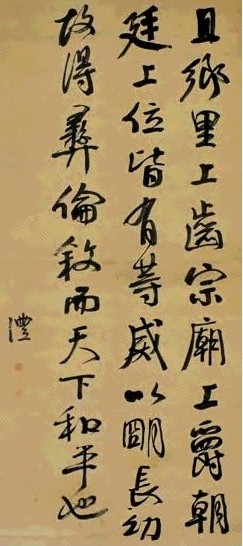 且鄉里上齒宗廟上爵朝
廷上位皆有等威以明長幼
故得彝倫敘而天下和平也
澧